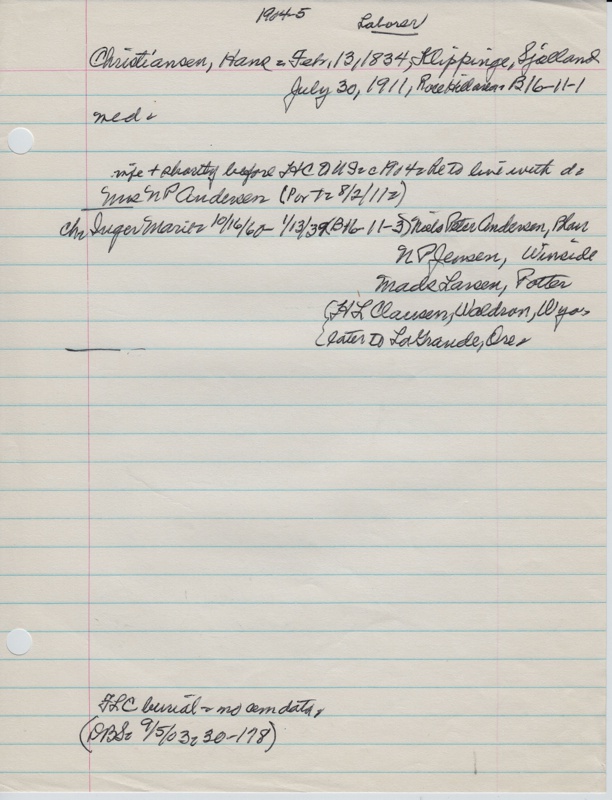 1904-5
Laborer
Christiansen, Hans = Feb. 13, 1834, Klippinge, Sjælland
July 30, 1911, Rose Hill B16-11-1
med =
wife + shortly before HC to US = c 1904 = he to live with d =
Mrs NP Andersen (Port = 8/2/11 =)
Ch = Inger Marie = 10/16/60 - 1/13/39 (B16-11-3) Niels Peter Andersen, Blair
NP Jensen, Winside
Mads Larsen, Potter
(H L Clausen, Waldron, Wyo.
(later to LaGrande, Ore.
FLC burial = no cem data.
(DBS = 9/5/03 = 30-178)